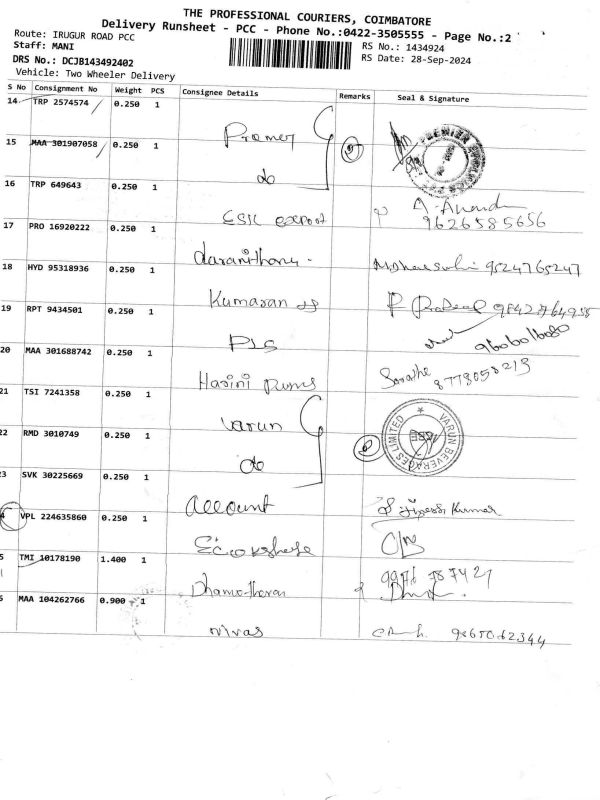 THE PROFESSIONAL COURIERS, COIMBATORE
Delivery Runsheet - PCC - Phone No.:0422-3505555 - Page No.:2
Route: IRUGUR ROAD PCC
RS No.: 1434924
Staff: MANI
RS Date: 28-Sep-2024
DRS No.: DCJB143492402
Vehicle: Two Wheeler Delivery
S No Consignment No Weight PCS Consignee Details Remarks Seal & Signature
14 TRP 2574574 0.250 1
15 MAA 301907058 0.250 1 do
16 TRP 649643 0.250 1 ESK export A. Anand
9626585656
17 PRO 16920222 0.250 1 9524765247
18 HYD 95318936 0.250 1 Kumaran
19 RPT 9434501 0.250 1
20 MAA 301688742 0.250 1 Hasini Pumps 8778058213
21 TSI 7241358 0.250 1 Varun VARUN BEVERAGES LIMITED
22 RMD 3010749 0.250 1 do
23 SVK 30225669 0.250 1 account Kumar
4 VPL 224635860 0.250 1
5 TMI 10178190 1.400 1 Dhamotharan 9976 787427
6 MAA 104262766 0.900 1 nivas 9865062344